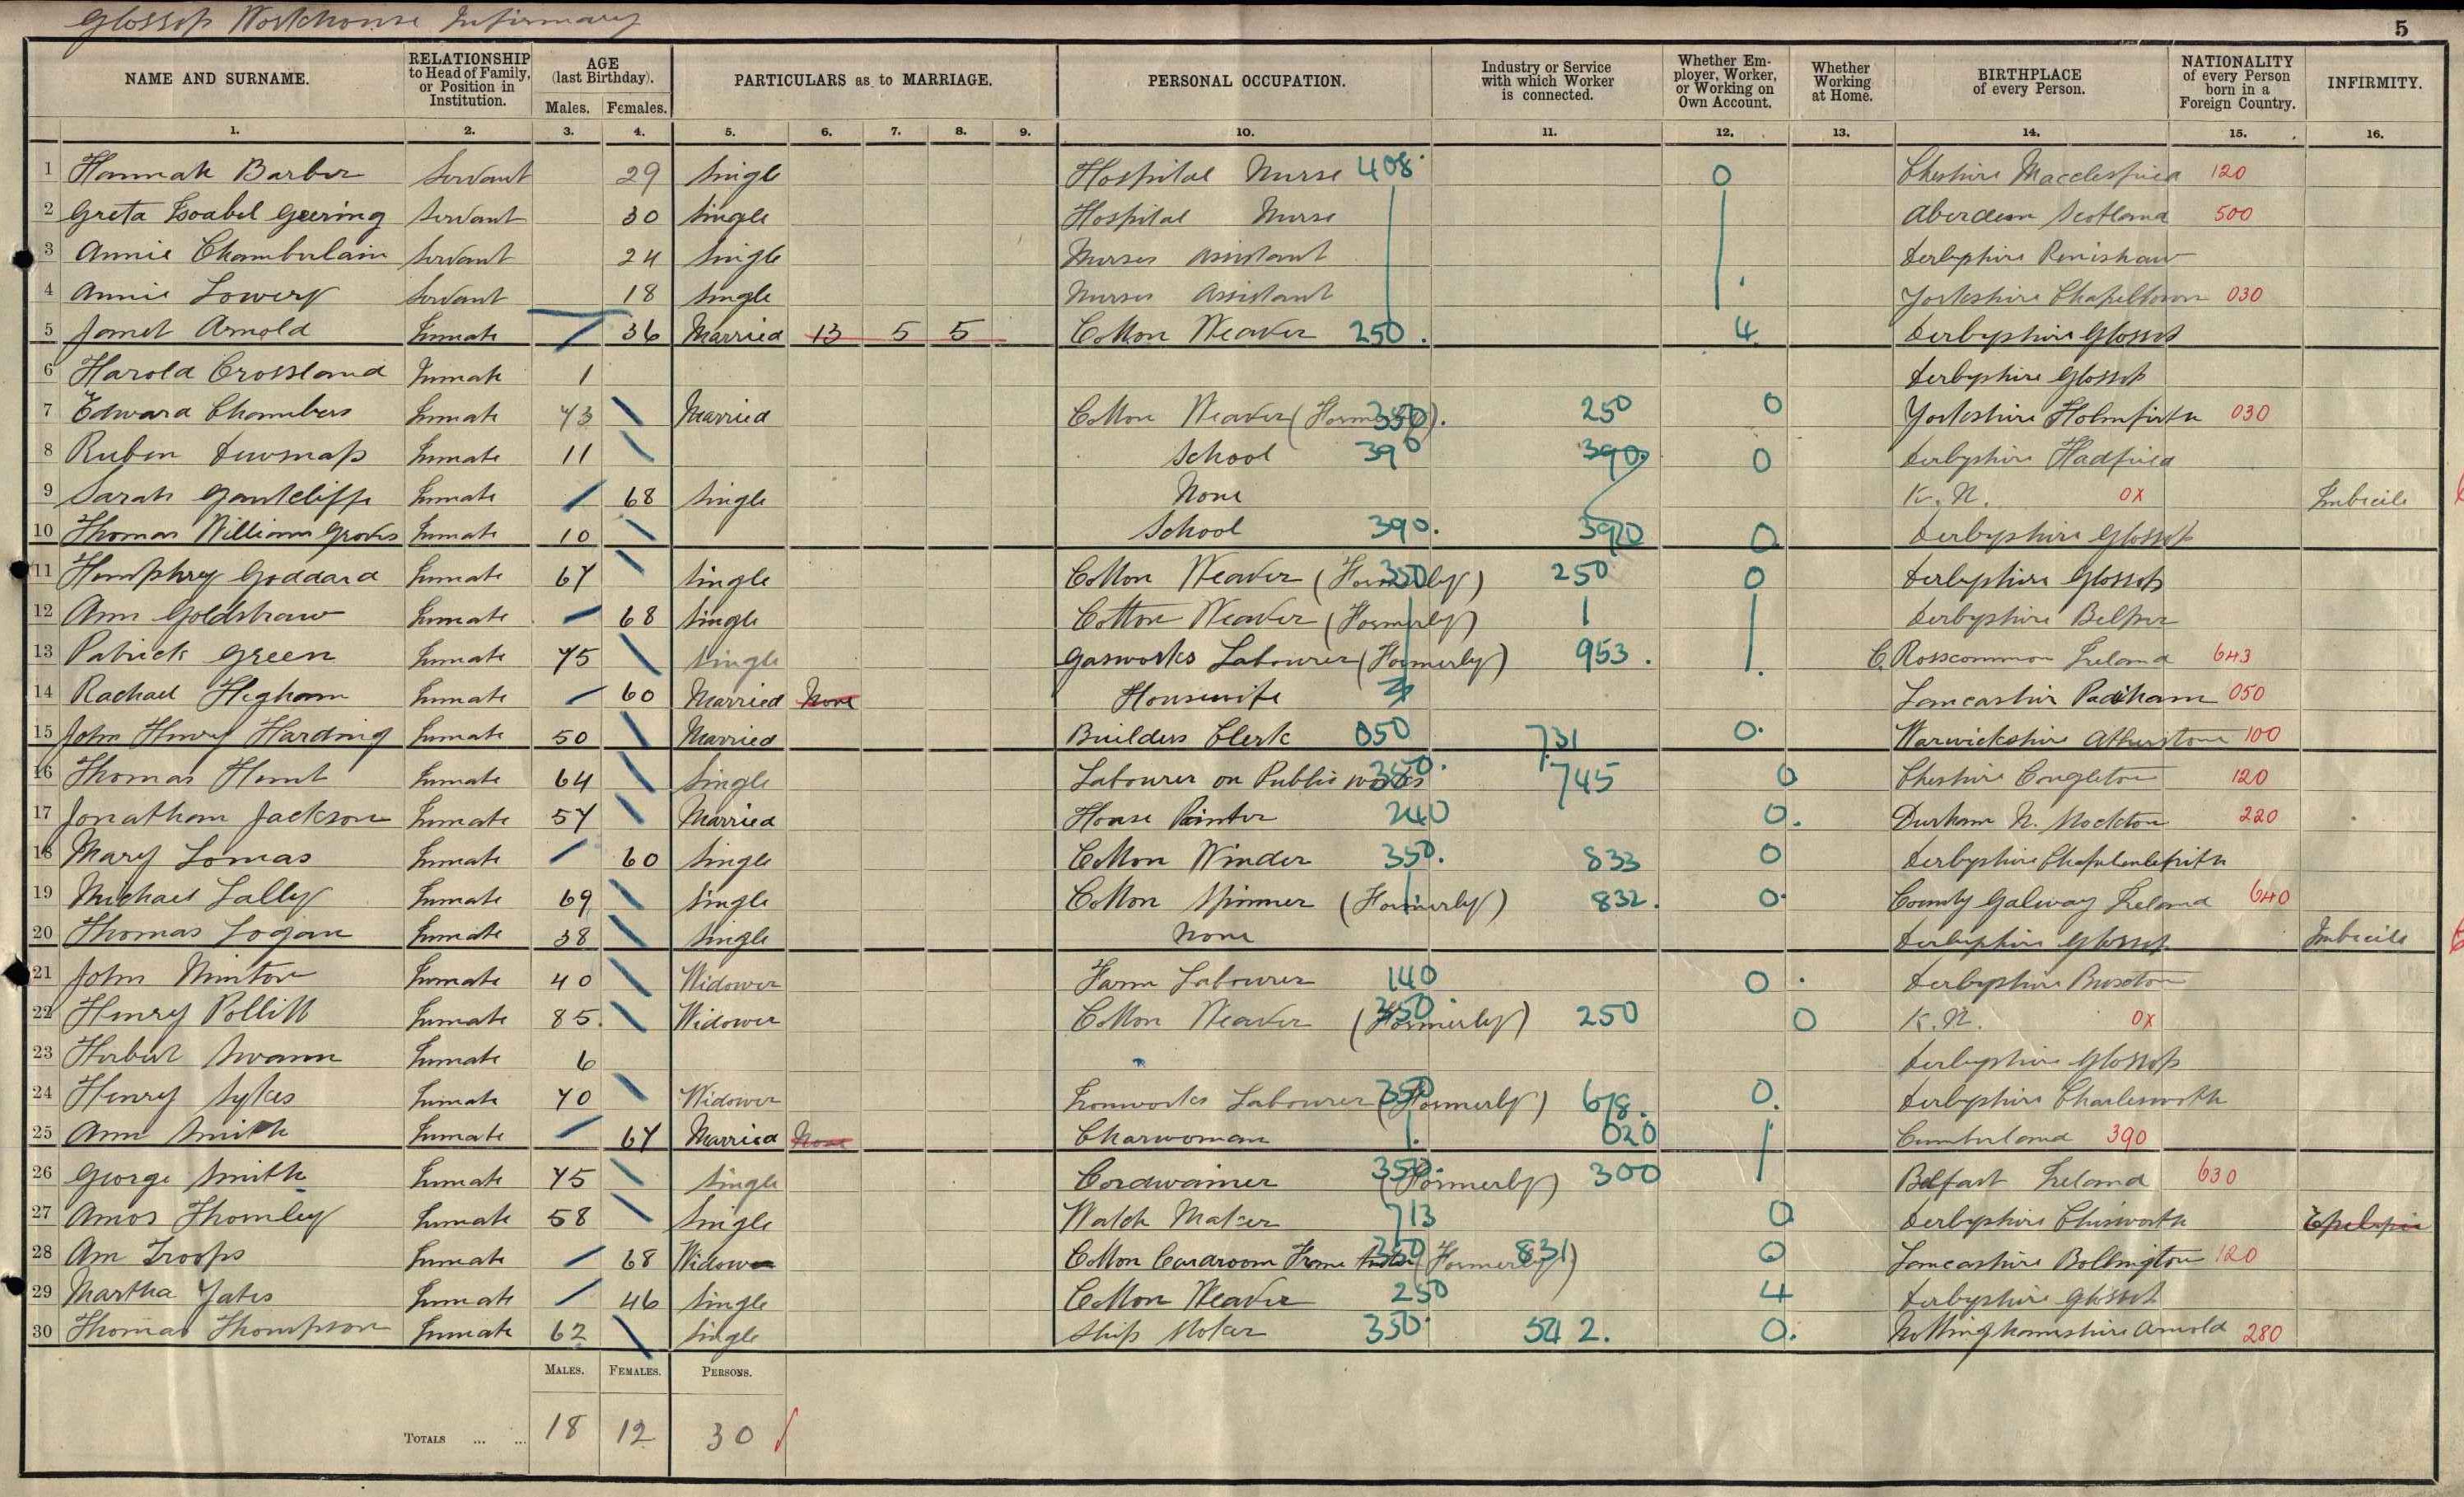 Glossop Workhouse Infirmary
5
NAME AND SURNAME. RELATIONSHIP to Head of Family, or Position in Institution. AGE (last Birthday). Males. Females. PARTICULARS as to MARRIAGE. PERSONAL OCCUPATION. Industry or Service with which Worker is connected. Whether Employer, Worker, or Working on Own Account. Whether Working at Home. BIRTHPLACE of every Person. NATIONALITY of every Person born in a Foreign Country. INFIRMITY.
1. 2. 3. 4. 5. 6. 7. 8. 9. 10. 11. 12. 13. 14. 15. 16.
1 Hannah Barber Servant 29 Single Hospital Nurse 408 0 Cheshire Macclesfield 120
2 Greta Isabel Geering Servant 30 Single Hospital Nurse Aberdeen Scotland 500
3 Annie Chamberlain Servant 24 Single Nurses Assistant Derbyshire Renishaw
4 Annie Lowery Servant 18 Single Nurses Assistant Yorkshire Chapeltown 030
5 Janet Arnold Inmate 36 Married 13 5 5 Cotton Weaver 250. 4 Derbyshire Glossop
6 Harold Crossland Inmate 1 Derbyshire Glossop
7 Edward Chambers Inmate 73 Married Cotton Weaver (Formerly) 350. 250 0 Yorkshire Holmfirth 030
8 Ruben Dewsnap Inmate 11 School 390 390 0 Derbyshire Hadfield
9 Sarah Gantcliffe Inmate 68 Single None K. N. 0X Imbecile
10 Thomas William Groves Inmate 10 School 390. 390 0 Derbyshire Glossop
11 Humphrey Goddard Inmate 67 Single Cotton Weaver (Formerly) 350 250 0 Derbyshire Glossop
12 Ann Goldstraw Inmate 68 Single Cotton Weaver (Formerly) Derbyshire Belper
13 Patrick Green Inmate 75 Single Gasworks Labourer (Formerly) 953. C. Rosscommon Ireland 643
14 Rachael Higham Inmate 60 Married None Housewife Lancashire Padiham 050
15 John Henry Harding Inmate 50 Married Builders Clerk 050 731 0. Warwickshire Atherstone 100
16 Thomas Hunt Inmate 64 Single Labourer on Public works 350. 745 0 Cheshire Congleton 120
17 Jonathan Jackson Inmate 57 Married House Painter 240 0. Durham N. Stockton 220
18 Mary Lomas Inmate 60 Single Cotton Winder 350. 833 0 Derbyshire Chapelenlefrith
19 Michael Lally Inmate 69 Single Cotton Spinner (Formerly) 832. 0. County Galway Ireland 640
20 Thomas Logan Inmate 38 Single None Derbyshire Glossop Imbecile
21 John Minton Inmate 40 Widower Farm Labourer 140 0. Derbyshire Buxton
22 Henry Pollitt Inmate 85. Widower Cotton Weaver (Formerly) 350 250 0 K. N. 0X
23 Herbert Swann Inmate 6 Derbyshire Glossop
24 Henry Sykes Inmate 70 Widower Ironworks Labourer (Formerly) 350 678. 0. Derbyshire Charlesworth
25 Ann Smith Inmate 67 Married None Charwoman 020 Cumberland 390
26 George Smith Inmate 75 Single Cordwainer (Formerly) 350 300 Belfast Ireland 630
27 Amos Thornley Inmate 58 Single Watch Maker 713 0 Derbyshire Chisworth Epelepsie
28 Ann Troops Inmate 68 Widow Cotton Cardroom Frame Tenter (Formerly) 350 831 0 Lancashire Bollington 120
29 Martha Yates Inmate 46 Single Cotton Weaver 250 4 Derbyshire Glossop
30 Thomas Thompson Inmate 62 Single Ship Stoker 350. 542. 0. Nottinghamshire Arnold 280
MALES. FEMALES. PERSONS.
TOTALS ... ... 18 12 30